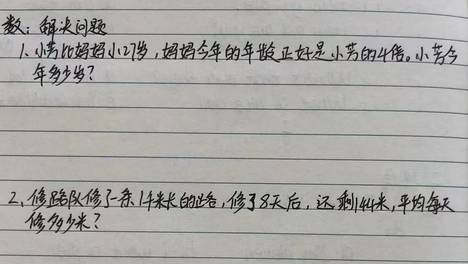 数：解决问题
1.小芳比妈妈小27岁，妈妈今年的年龄正好是小芳的4倍。小芳今
年多少岁？
2,修路队修了一条1千米长的路，修了8天后，还剩144米，平均每天
修多少米？